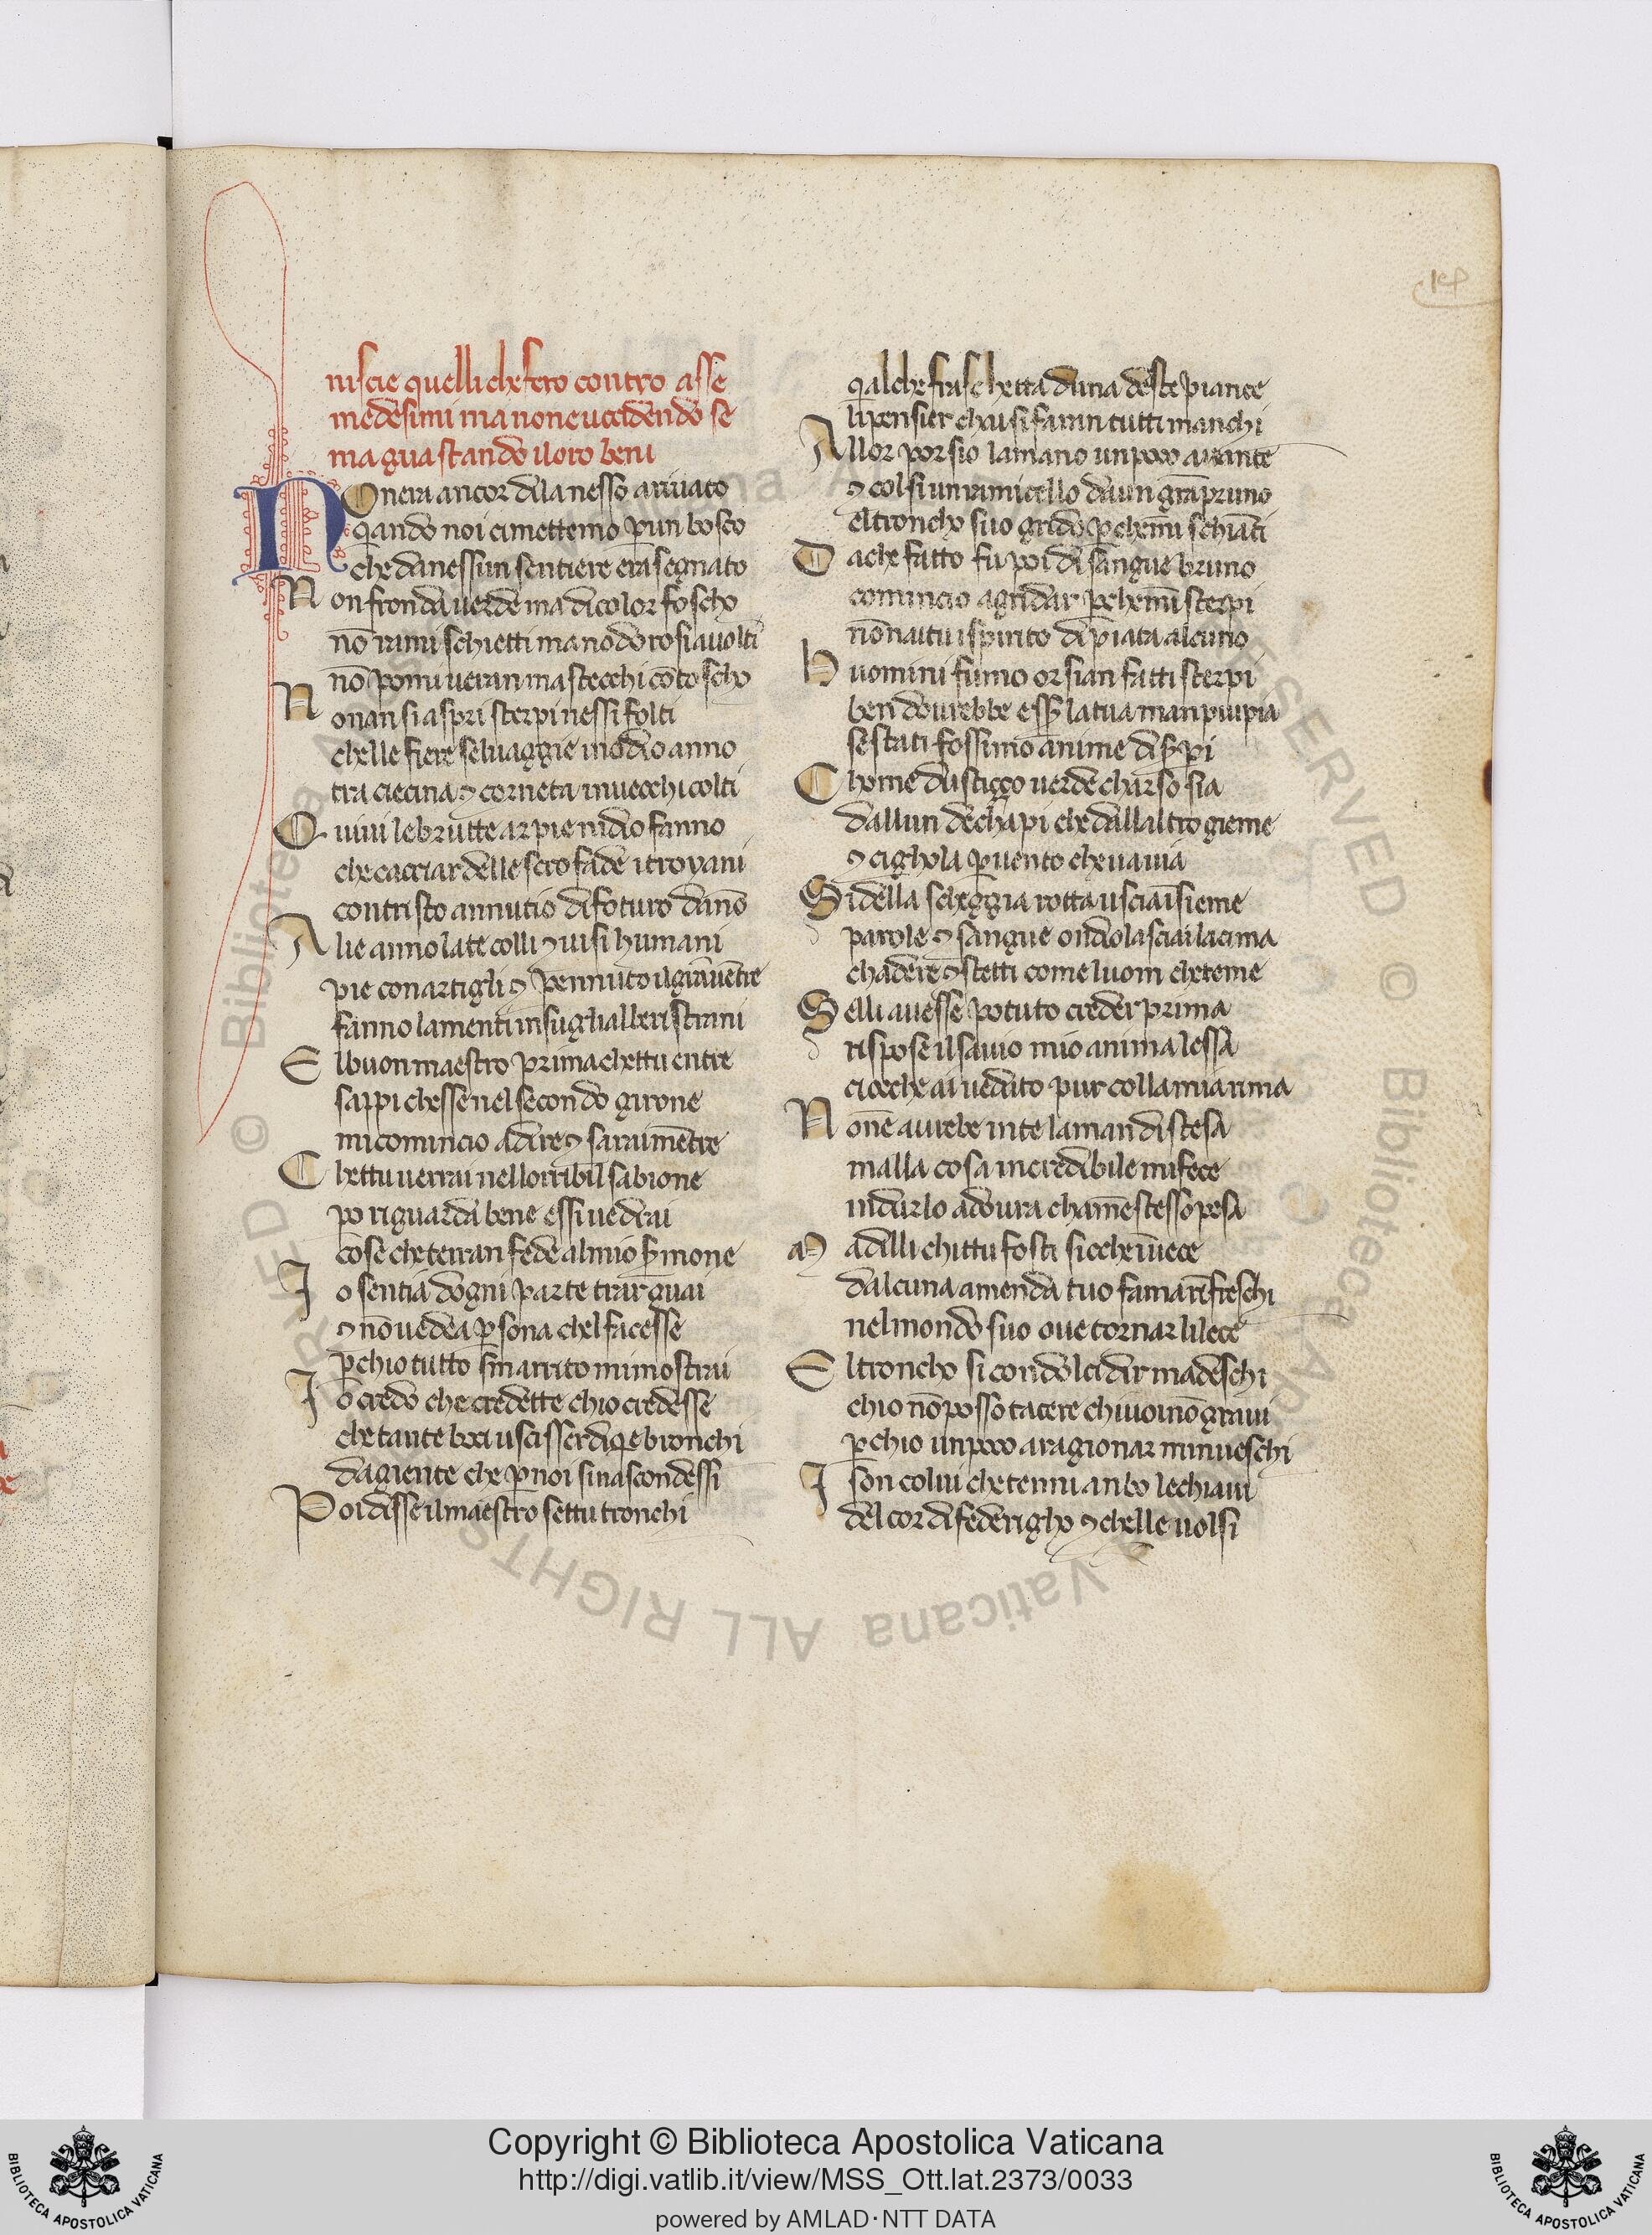 14
niscie quelli che fero contro asse
medesimi ma non e uccidendo se
ma guastando i loro beni
NOnera ancor dila nesso arivato
qando noi cimettemo p̄ un bosco
che danessun sentiere era segnato
Non fronda uerde ma dicolor foscho
nō rami schietti ma nodorosi auolti
nō pomi ueran ma stecchi cō toscho
Nonan si aspri sterpi nessi folti
chelle fiere seluaggie inodio anno
tra ciecina ⁊ corneta inuecchi colti
Quiui le brutte arpie nidio fanno
che cacciar delle strofade i troyani
con tristo annutio difoturo dāno
Alie anno late colli ⁊ uisi humani
pie con artigli ⁊ pennuto il grāuentre
fanno lamenti insugli alberi strani
El buon maestro prima chettu entre
sappi chesse nel secondo girone
mi comincio adire ⁊ sarai mētre
Chettu uerrai nellorribil sabione
po riguarda bene essi uederai
cose che terran fede al mio s̄mone
Io sentia dogni parte trar guai
⁊ nō uedea p̄sona chel facesse
p̄chio tutto smarrito mi mostrai
Io credo che credette chio credesse
che tante boci uscisser diqe bronchi
dagiente che p̄ noi si nascondessi
Poi disse il maestro settu tronchi
qalche fraschetta duna deste piante
li pensier chai si farān tutti manchi
Allor porsio la mano un poco auante
⁊ colsi un ramicello da un grā pruno
el troncho suo grido p̄chemi schiāti
Da che fatto fu poi di sangue bruno
comincio a gridar p̄chemi sterpi
nō nai tu ispirito di piata alcuno
Huomini fumo or sian fatti sterpi
ben dourebbe ess̄ la tua man piu pia
se stati fossimo anime di s̄pi
Chome du stiço uerde charso sia
dallun de chapi che dallaltro gieme
⁊ cighola p̄ uento che ua uia
Si della scheggia rotta uscia īsieme
parole ⁊ sangue ondio lasciai la cima
chadere ⁊ stetti come luom che teme
Selli auesse potuto creder prima
rispose il sauio mio anima lessa
cio che ai ueduto pur colla mia rima
Non e aurebe in te la man distesa
malla cosa incredibile mi fece
indurlo adoura cha mē stesso pesa
Ma dilli chittu fosti sicche īuece
dalcuna amenda tuo fama rīfreschi
nel mondo suo oue tornar lilece
El troncho si con dolci dir madeschi
chio nō posso tacere chi uoi nō graui
p̄chio un poco a ragionar minueschi
I son colui che tenni anbo le chiaui
del cor di federigho ⁊ chelle uolsi
© Biblioteca Apostolica Vaticana ALL RIGHTS RESERVED
Copyright © Biblioteca Apostolica Vaticana
http://digi.vatlib.it/view/MSS_Ott.lat.2373/0033
powered by AMLAD·NTT DATA
BIBLIOTECA APOSTOLICA VATICANA
BIBLIOTECA APOSTOLICA VATICANA